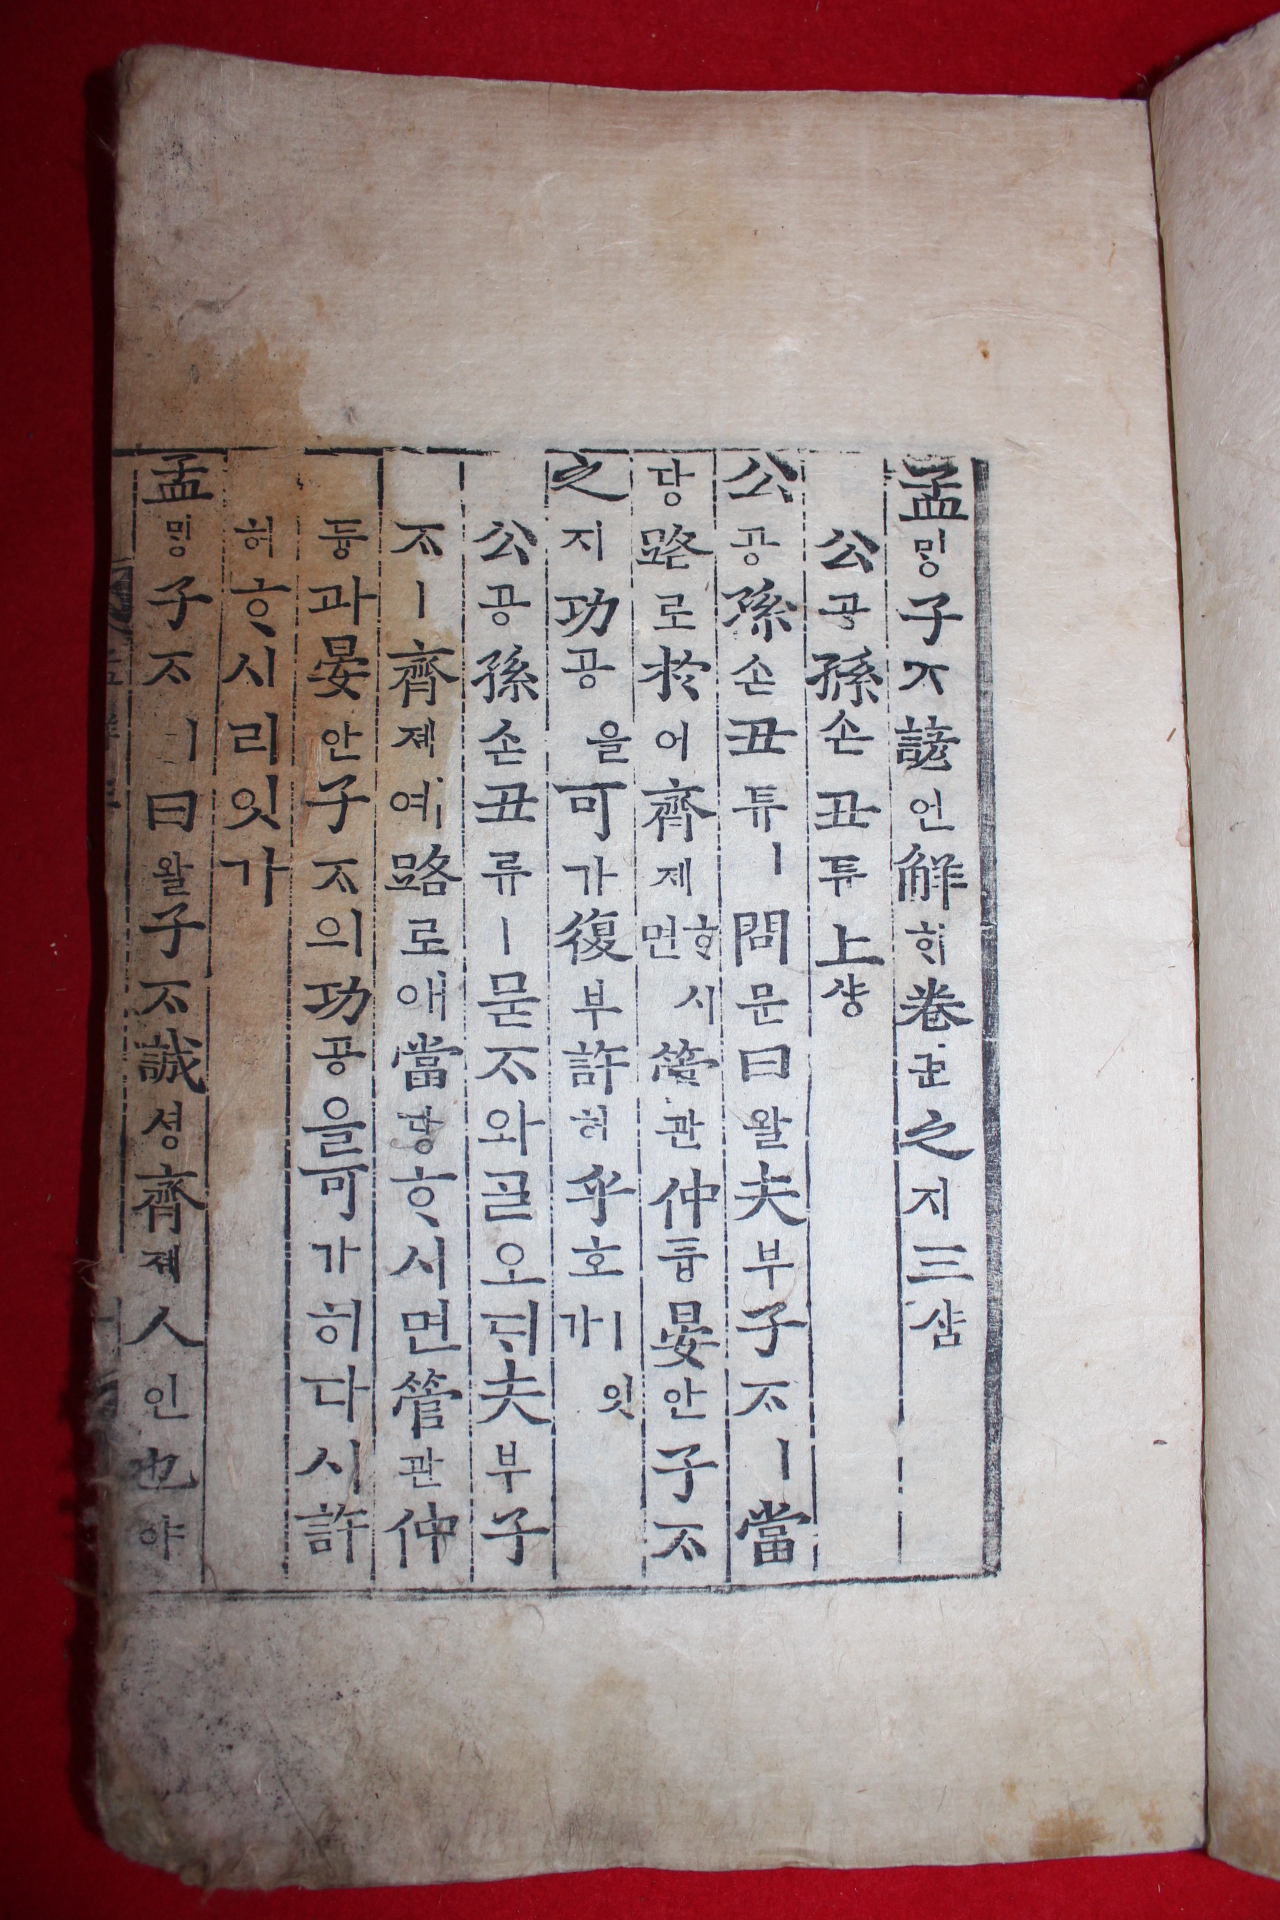 孟ᄆᆡᆼ子ᄌᆞ諺언解ᄒᆡ卷권之지三삼
公공孫손丑튜上샹
公공孫손丑튜ㅣ問문曰왈夫부子ᄌᆞㅣ當
당路로於어齊제ᄒᆞ시면管관仲듕晏안子ᄌᆞ
之지功공을可가復부許허乎호ㅣ잇가
公공孫손丑류ㅣ묻ᄌᆞ와ᄀᆞᆯ오ᄃᆡ夫부子
ᄌᆞㅣ齊졔예路로애當당ᄒᆞ시면管관仲
듕과晏안子ᄌᆞ의功공을可가히다시許
허ᄒᆞ시리잇가
孟ᄆᆡᆼ子ᄌᆞㅣ曰왈子ᄌᆞ誠셩齊졔人인也야